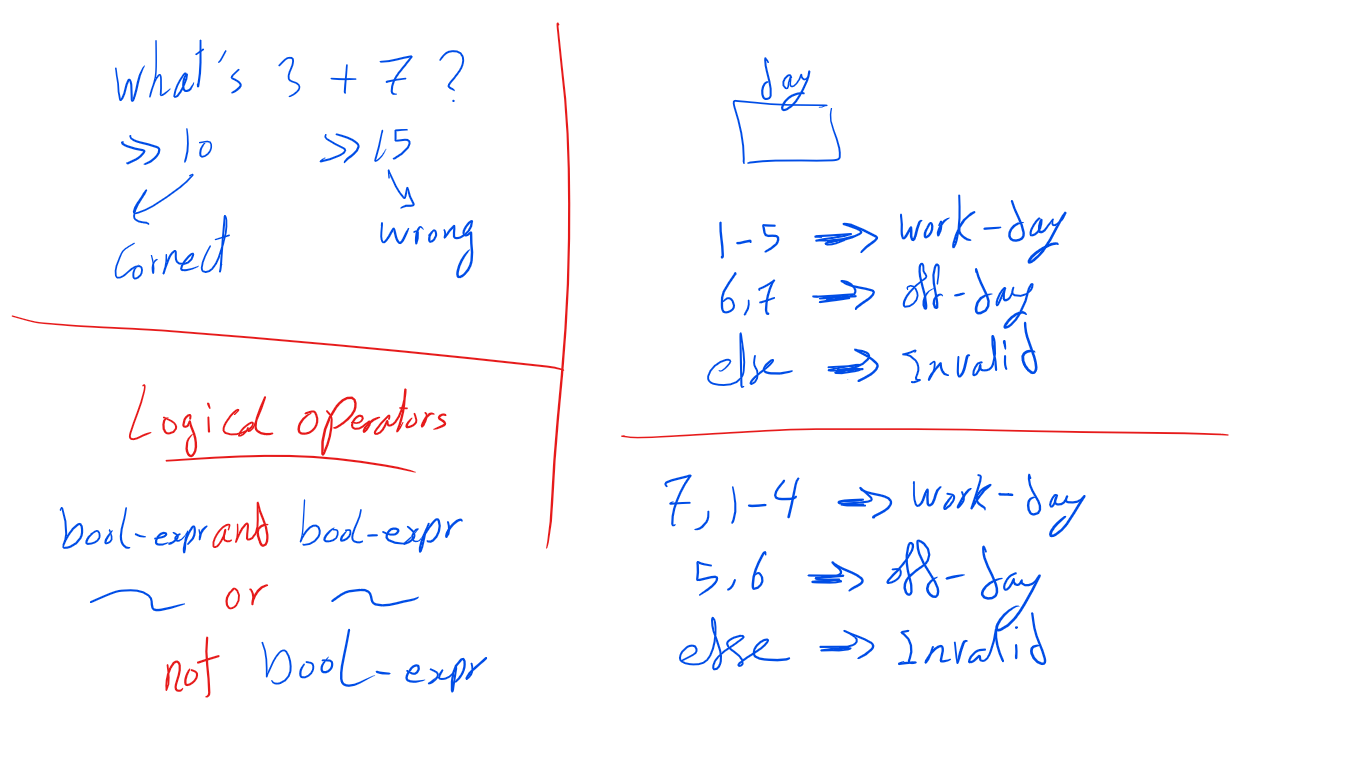 What's 3 + 7 ?
>> 10 >> 15
Correct wrong
Logical operators
bool-expr and bool-expr
~ or ~
not bool-expr
day
1-5 => work-day
6,7 => off-day
else => Invalid
7, 1-4 => work-day
5,6 => off-day
else => Invalid